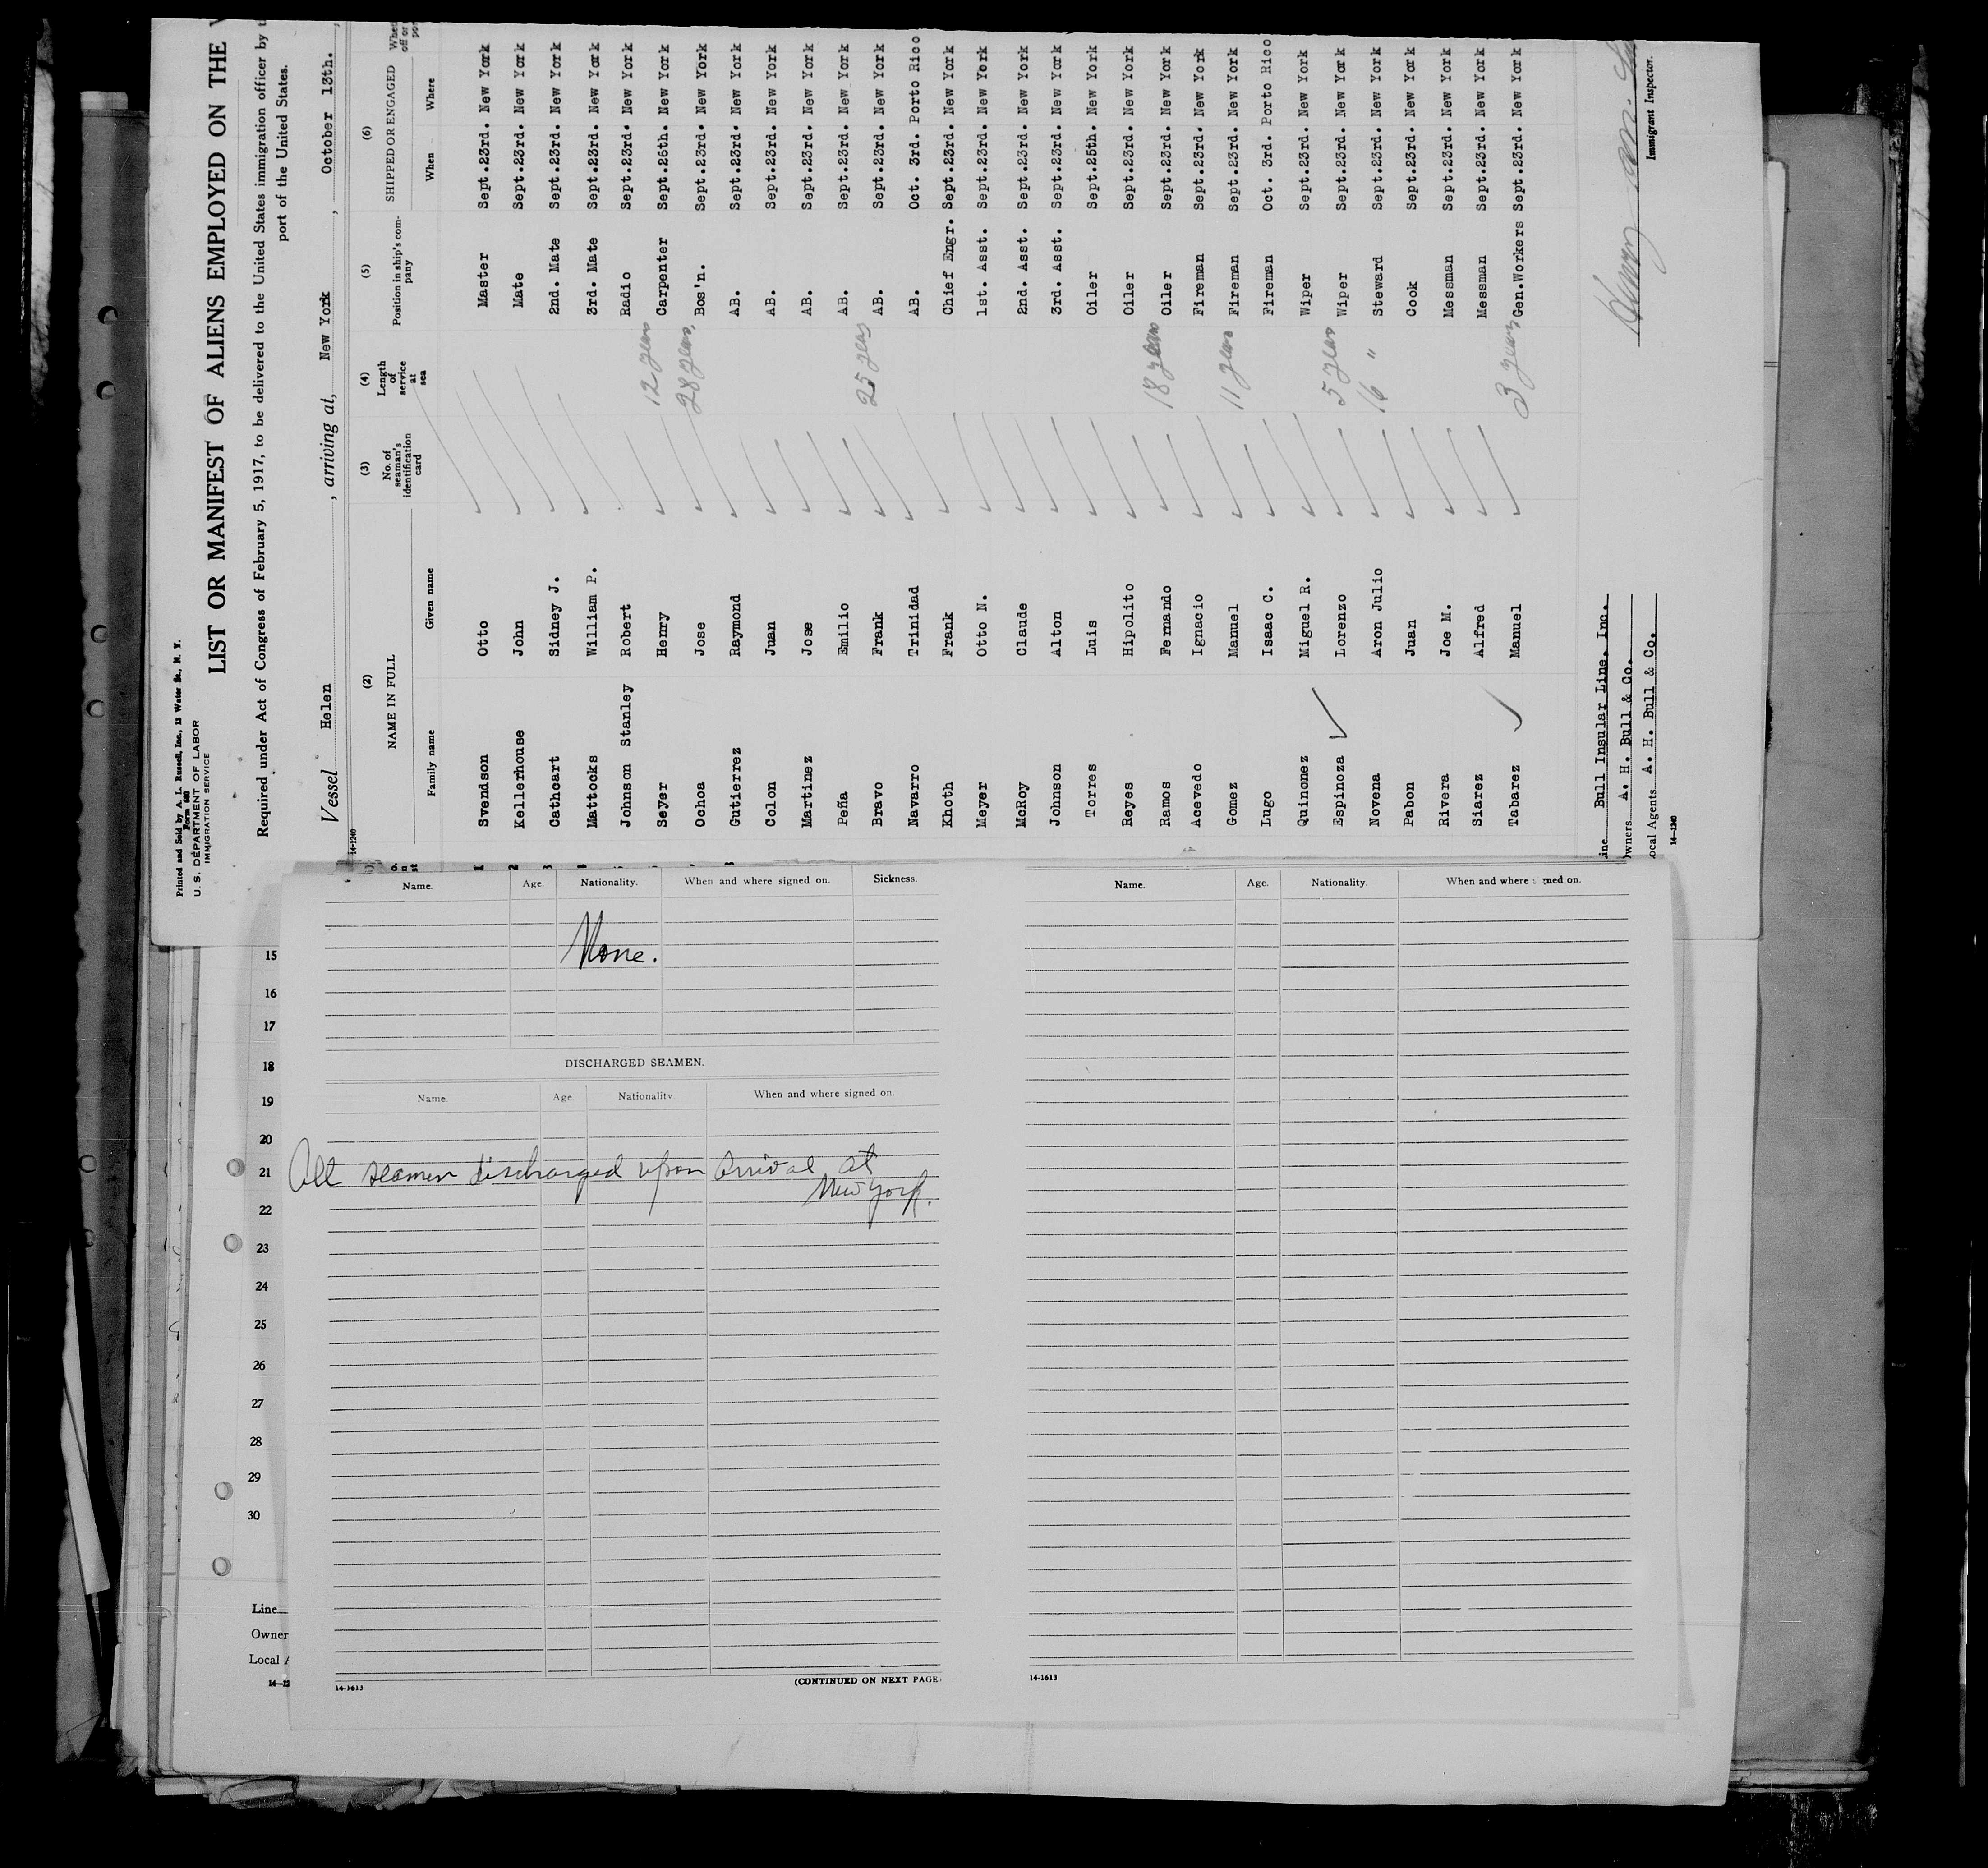 Printed and Sold by A. L. Russell, Inc., 13 Water St., N. Y.
Form 680
U. S. DEPARTMENT OF LABOR
IMMIGRATION SERVICE
LIST OR MANIFEST OF ALIENS EMPLOYED ON THE
Required under Act of Congress of February 5, 1917, to be delivered to the United States immigration officer by
port of the United States.
Vessel Helen , arriving at, New York , October 13th.
14-1240
(2) (3) (4) (5) (6)
NAME IN FULL No. of seaman's identification card Length of service at sea Position in ship's company SHIPPED OR ENGAGED
Family name Given name When Where
Svendson Otto Master Sept.23rd. New York
Kellerhouse John Mate Sept.23rd. New York
Cathcart Sidney J. 2nd. Mate Sept.23rd. New York
Mattocks William P. 3rd. Mate Sept.23rd. New York
Johnson Stanley Robert Radio Sept.23rd. New York
Seyer Henry 12 years Carpenter Sept.25th. New York
Ochoa Jose 28 years, Bos'n. Sept.23rd. New York
Gutierrez Raymond AB. Sept.23rd. New York
Colon Juan AB. Sept.23rd. New York
Martinez Jose AB. Sept.23rd. New York
Peña Emilio AB. Sept.23rd. New York
Bravo Frank 25 years AB. Sept.23rd. New York
Navarro Trinidad AB. Oct. 3rd. Porto Rico
Khoth Frank Chief Engr. Sept.23rd. New York
Meyer Otto N. 1st. Asst. Sept.23rd. New York
McRoy Claude 2nd. Asst. Sept.23rd. New York
Johnson Alton 3rd. Asst. Sept.23rd. New York
Torres Luis Oiler Sept.25th. New York
Reyes Hipolito Oiler Sept.23rd. New York
Ramos Fernando 18 years Oiler Sept.23rd. New York
Acevedo Ignacio Fireman Sept.23rd. New York
Gomez Manuel 11 years Fireman Sept.23rd. New York
Lugo Isaac C. Fireman Oct. 3rd. Porto Rico
Quinonez Miguel R. Wiper Sept.23rd. New York
Espinoza Lorenzo 5 years Wiper Sept.23rd. New York
Novena Aron Julio 16 " Steward Sept.23rd. New York
Pabon Juan Cook Sept.23rd. New York
Rivera Joe M. Messman Sept.23rd. New York
Siarez Alfred Messman Sept.23rd. New York
Tabarez Manuel 3 years Gen.Workers Sept.23rd. New York
Line Bull Insular Line. Inc.
Owners A. H. Bull & Co.
Local Agents A. H. Bull & Co.
14-1240
Immigrant Inspector.
Name. Age. Nationality. When and where signed on. Sickness.
None.
DISCHARGED SEAMEN.
Name. Age. Nationality. When and where signed on.
All seamen discharged upon arrival at
New York.
(CONTINUED ON NEXT PAGE
14-1613
Name. Age. Nationality. When and where signed on.
14-1613
15
16
17
18
19
20
21
22
23
24
25
26
27
28
29
30
Line
Owner
Local A
14-12